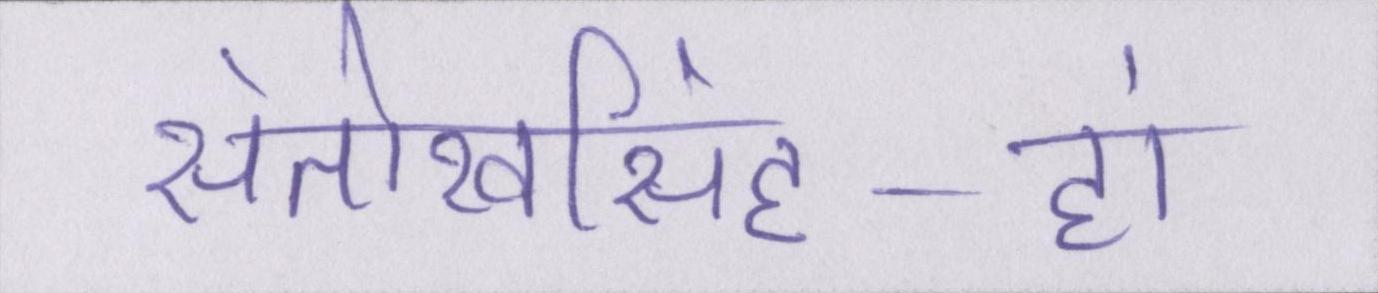 संतोखसिंह - हां